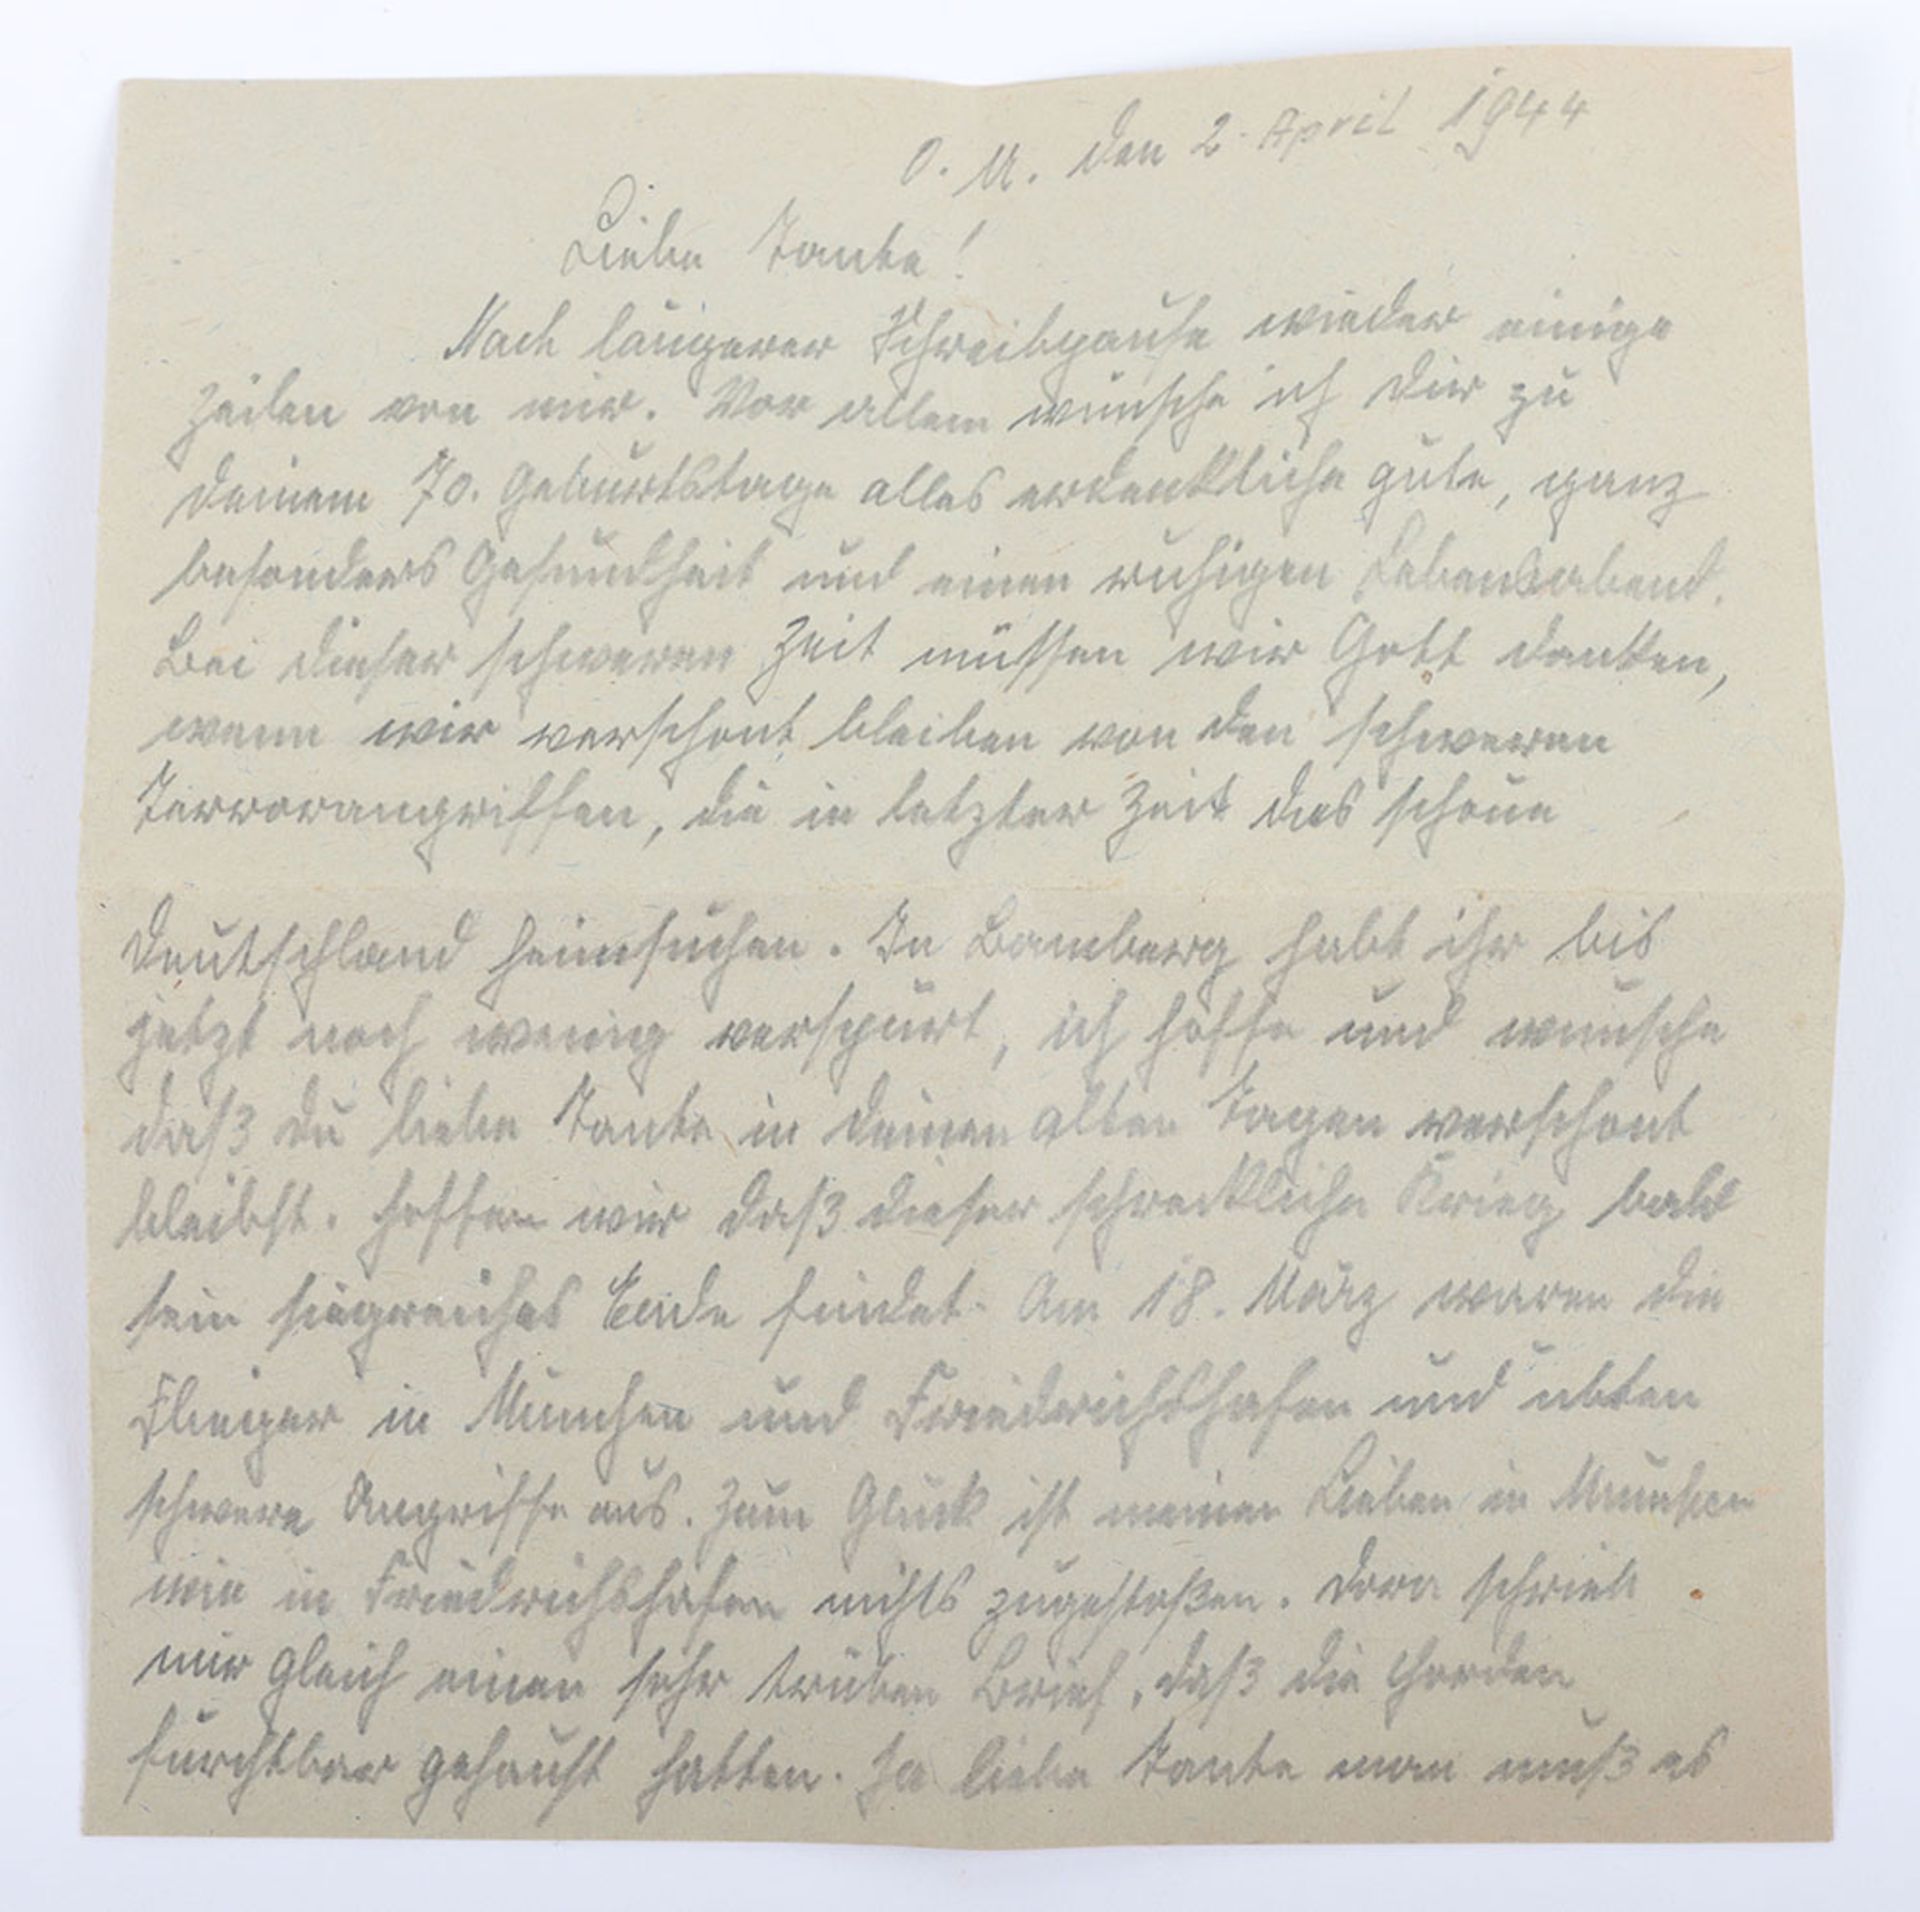 O. U. den 2. April 1944
Liebe Tante!
Nach längerer Schreibpause wieder einige
Zeilen von mir. Vor allem wünsche ich Dir zu
Deinem 70. Geburtstage alles erdenkliche gute, ganz
besonders Gesundheit und einen ruhigen Lebensabend.
Bei dieser schweren Zeit müssen wir Gott danken,
wenn wir verschont bleiben von den schweren
Terrorangriffen, die in letzter Zeit das schöne
Deutschland heimsuchen. In Bamberg habt ihr bis
jetzt noch wenig verspürt, ich hoffe und wünsche
daß du liebe Tante in deinen alten Tagen verschont
bleibst. Hoffen wir daß dieser schreckliche Krieg bald
sein siegreiches Ende findet. Am 18. März waren die
Flieger in München und Friedrichshafen und übten
schwere Angriffe aus. Zum Glück ist meinen Lieben in München
wie in Friedrichshafen nichts zugestoßen. Dora schrieb
mir gleich einen sehr trüben Brief, daß die Horden
furchtbar gehaust hatten. Ja liebe Tante man muß es